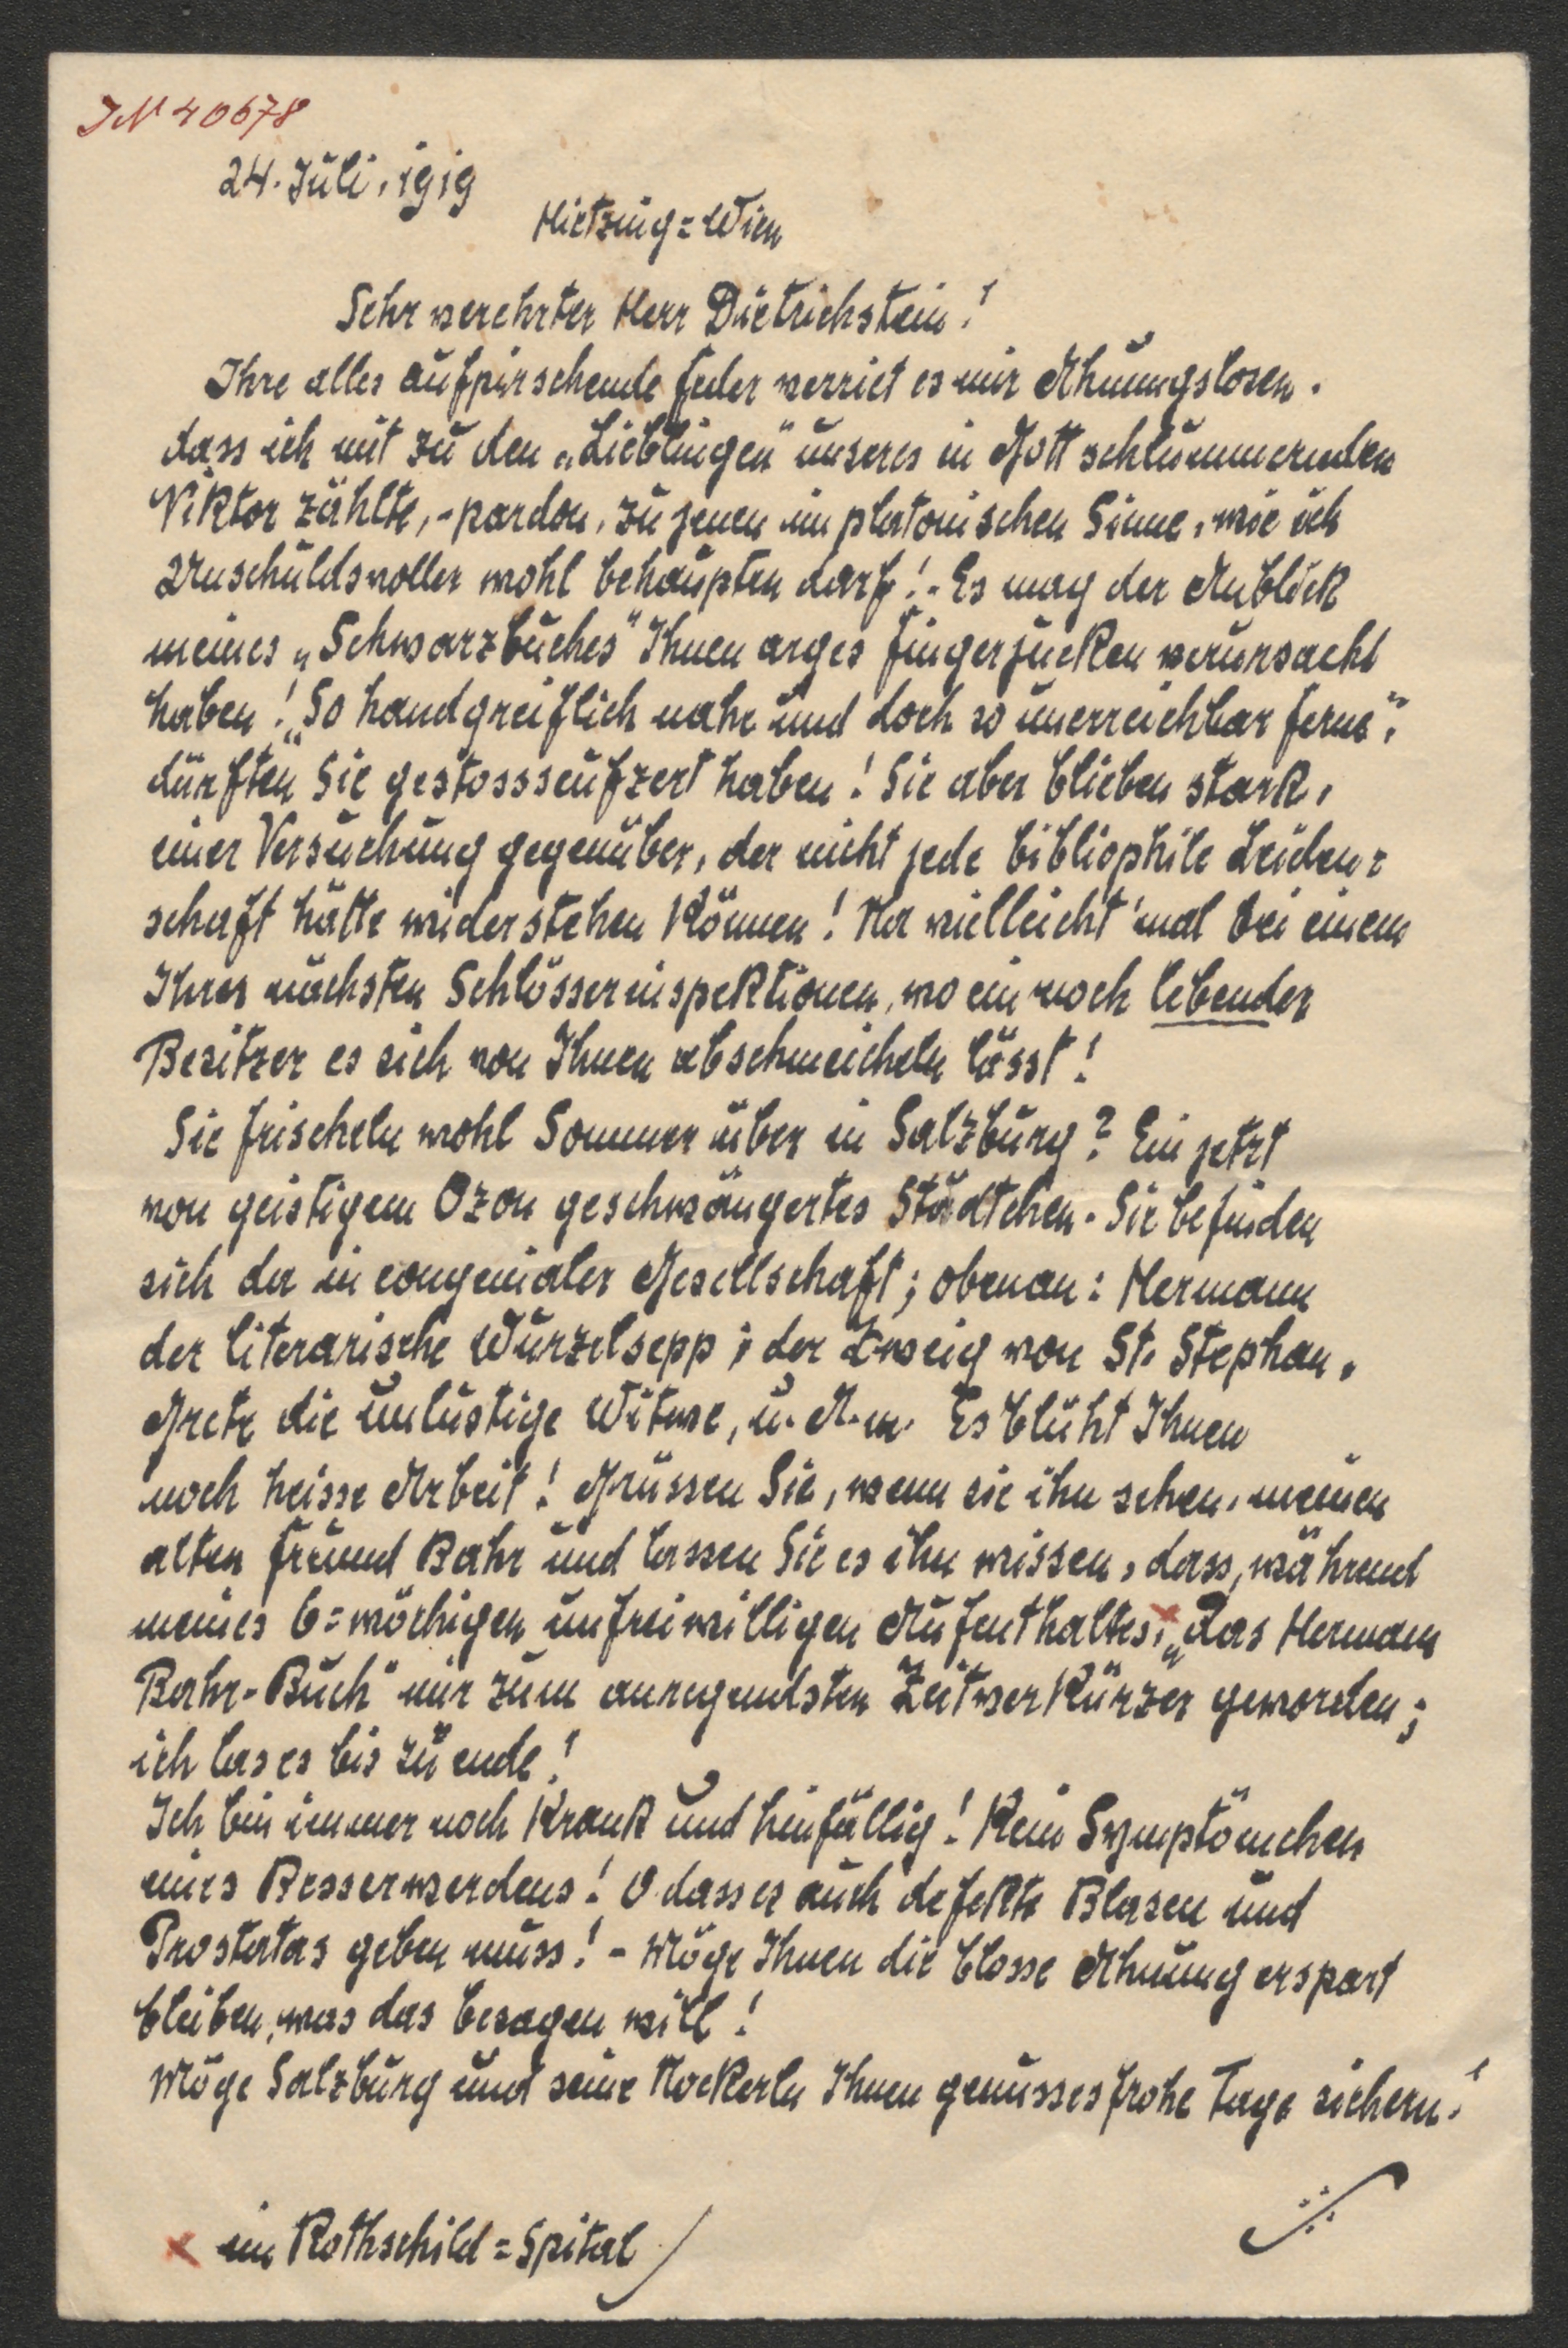 JN 40678
24. Juli, 1919
Hietzing=Wien
Sehr verehrter Herr Dietrichstein!
Ihre alles aufpirschende Feder verriet es mir Ahnungslosen,
dass ich mit zu den „Lieblingen" unseres in Gott schlummernden
Viktor zählte,-pardon, zu jenen im platonischen Sinne, wie ich
Unschuldsvoller wohl behaupten darf!- Es mag der Anblick
meines „Schwarzbuches" Ihnen arges Fingerjucken verursacht
haben! „So handgreiflich nahe und doch so unerreichbar ferne",
dürften Sie gestossseufzert haben! Sie aber blieben stark,
einer Versuchung gegenüber, der nicht jede bibliophile Leiden=
schaft hätte widerstehen können! Na vielleicht 'mal bei einem
Ihrer nächsten Schlösserinspektionen, wo ein noch lebender
Besitzer es sich von Ihnen abschmeicheln lässt!
Sie frischeln wohl Sommer über in Salzburg? Ein jetzt
von geistigem Ozon geschwängertes Städtchen. Sie befinden
sich da in congenialer Gesellschaft; obenan: Hermann
der literarische Wurzelsepp; der Zweig von St. Stephan,
Grete die unlustige Witwe, u. A. m. Es blüht Ihnen
noch heisse Arbeit! Grüssen Sie, wenn sie ihn sehen, meinen
alten Freund Bahr und lassen Sie es ihn wissen, dass, während
meines 6=wöchigen unfreiwilligen Aufenthaltes,× „das Hermann
Bahr-Buch" mir zum anregendsten Zeitverkürzer geworden;
ich las es bis zu ende!
Ich bin immer noch krank und hinfällig! Kein Symptömchen
eines Besserwerdens! O dass es auch defekte Blasen und
Prostatas geben muss! - Möge Ihnen die blosse Ahnung erspart
bleiben, was das besagen will!
Möge Salzburg und seine Nockerln Ihnen genussesfrohe Tage sichern!
× im Rothschild=Spital